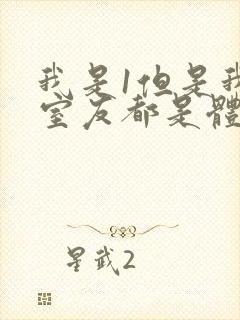 我是1但是我
室友都是體
星武2